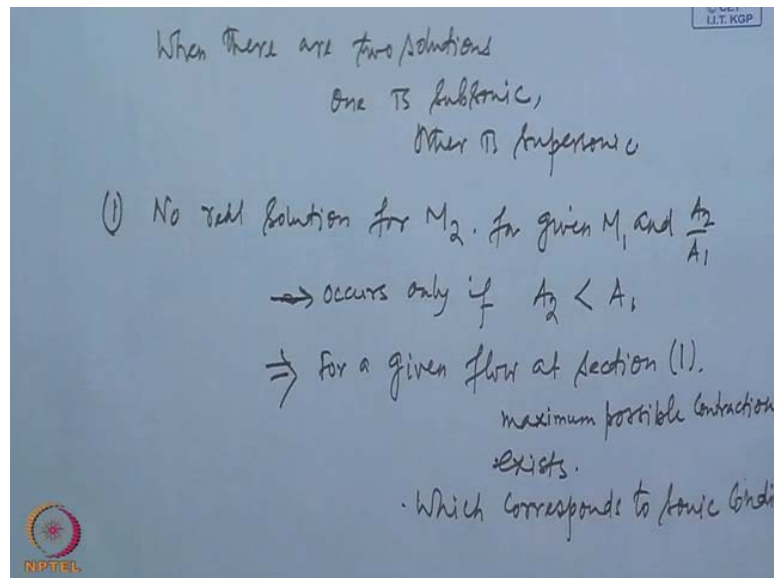 © CET
I.I.T. KGP
When there are two solutions
One is subsonic,
Other is supersonic
(1) No real solution for M2. for given M1 and A2/A1
→ occurs only if A2 < A1
⇒ For a given flow at section (1).
maximum possible contraction
exists.
. Which corresponds to sonic Condi
NPTEL